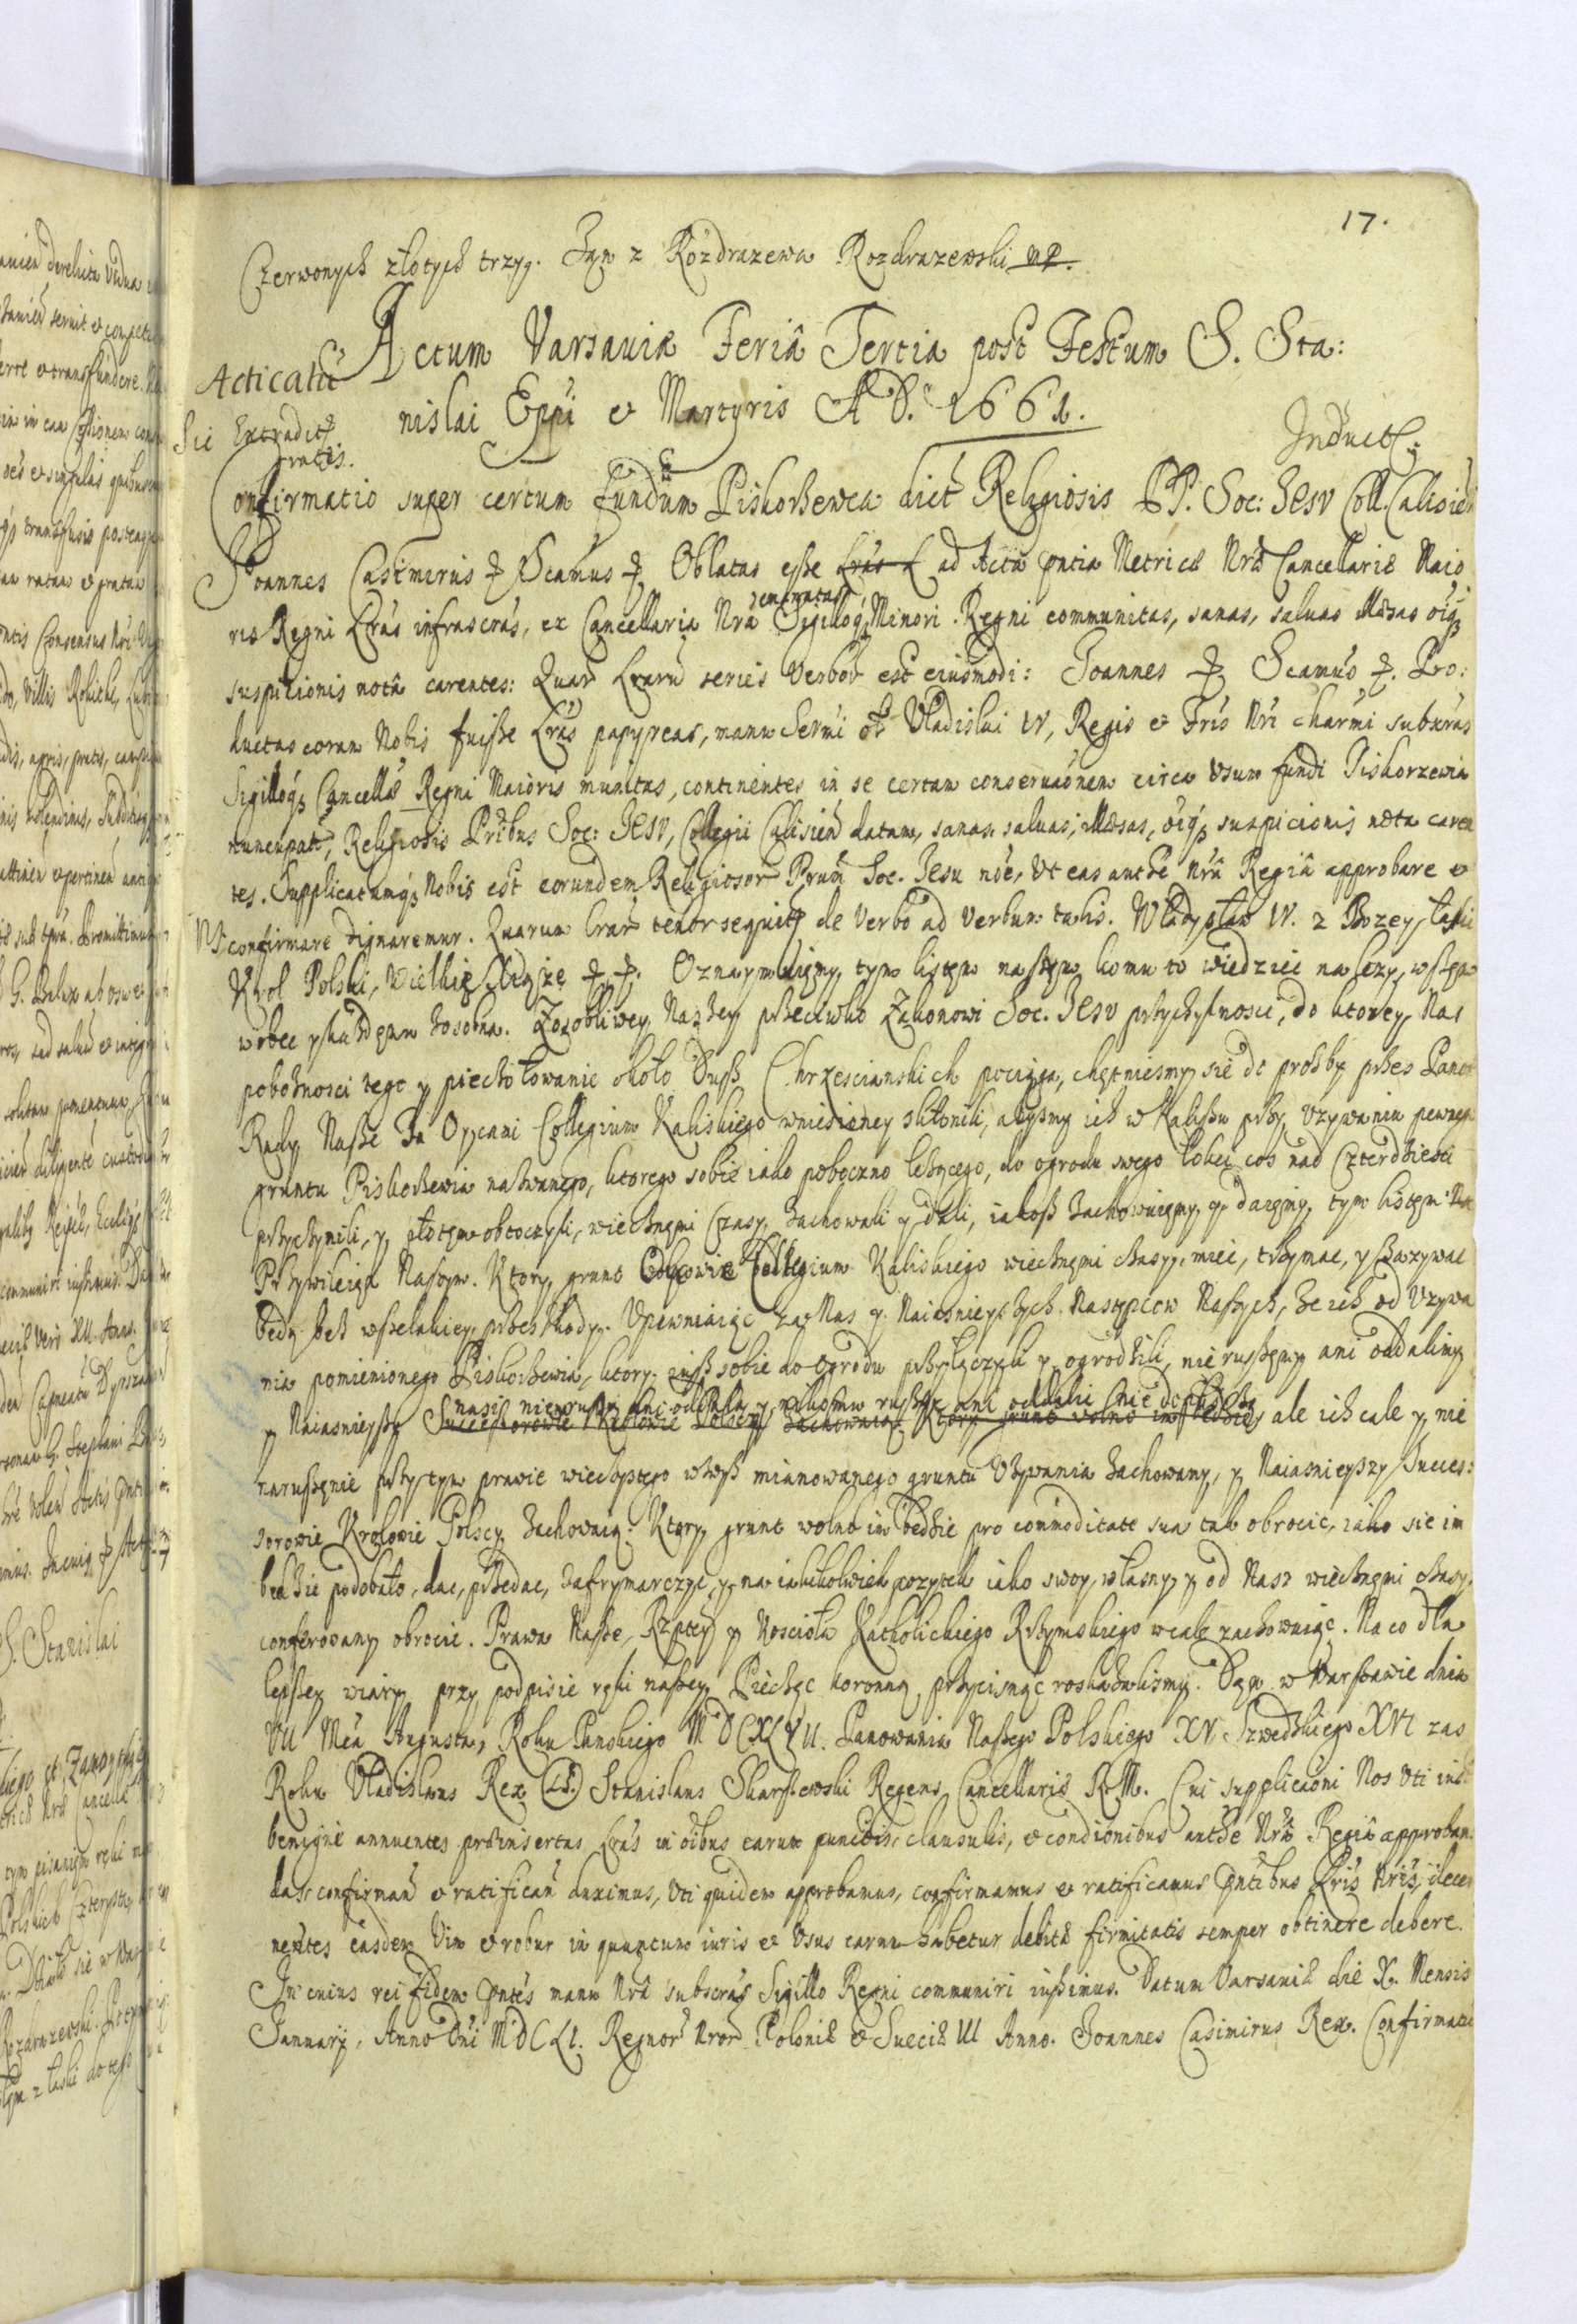 17.
Czerwonych złotych trzy. Jan z Rozdrazewa Rozdrazewski mp.
Actum Varsaviæ Feriâ Tertia post Festum S. Sta:
Acticatũ
nislai Eppi et Martyris A D. 1661.
Sie Extradit
gratis.
Induct:
Confirmatio super certum fundum Piskorzewca dict Religiosis PP. Soc: Jesv Coll. Calisien
Joannes Casimirus Scamus Oblatas esse Lras L ad Acta pntia Metrices Nræ Cancellariæ Maio
ris Regni Lras infrascras, ex Cancellaria Nra emanatas Sigilloq Minori Regni communitas, sanas, saluas illæsas oiq
suspitionis notâ carentes: Quar Lrarũ series Verbor est eiusmodi: Joannes Scamus Pro:
ductas coram Nobis fuisse Lras papyreas, manu Sermi ol Vladislai IV, Regis et Fris Nri charmi subscras
Sigilloq Cancellæ Regni Maioris munitas, continentes in se certam conseruaonem circa Vsum fundi Piskorzewia
nuncupat, Religiosis Pribus Soc: Jesv, Collegii Calisien datam, sanas, saluas, illæsas, oiq suspicionis nota caren
tes. Supplicatumq Nobis est eorundem Religiosor Prum Soc. Jesu noe, Vt eas authe Nrâ Regiâ approbare et
confirmare dignaremur. Quarum Lrar tenor sequit de Verbo ad Verbum talis. Władysław IV. z Bozey Łaski
Krol Polski, Wielkie Xiąze Oznaymuiemy, tym listem naszym komu to wiedziec nalezy, wszem
wobec y kazdemu zosobna. Zosobliwey Naszey przeciwko Zakonowi Soc. Jesv przychylnosci, do ktorey Nas
poboznosci tego y piechotowanie około Dusz Chrzescianskich pociąga, chętniesmy sie do prosby przes Panow
Rady Nasze Za Oycami Collegium Kaliskiego wniesioney skłonili, abysmy ich w Kaliszu przy Vzywaniu pewnego
gruntu Piskorzewia nazwanego, ktorego sobie iako poboczno lezącego, do ogrodu swego łokci cos nad Czterdziesci
przyczynili, y płotem obtoczyli, wiecznemi Czasy, Zachowali y dali, iakosz Zachowuiemy y daiemy, tym listem
Przywileiem Naszym. Ktory grunt Oycowie Collegium Kaliskiego wiecznemi czasy, miec, trzymac, y zazywac
bedą bez wszelakiey przeszkody. Vpewniaiąc za Nas y Naiasnieyszych Następcow Naszych, ze ich od Vzywa
nia pomienionego Piskorzewia, ktory iusz sobie do ogrodu przyłączyli y ogrodzili, nie ruszemy ani oddalimy
nasi nie ruszą ani oddalą y nikomu ruszyc ani oddalic nie dopuszczą
y Naiasnieyszy Successorowie Krolowie Polscy Zachowaią Ktory grunt wolno im bedzie, ale ich cale y nie
naruszenie przy tym prawie wieczystego wzwyz mianowanego gruntu Vzywania Zachowamy, y Naiasnieyszy Succes:
sorowie Krolowie Polscy Zachowaią: Ktory grunt wolno im bedzie pro commoditate sua tak obrocic, iako sie im
bedzie podobało, dac, przedac, Zafrymarczyc, y na iakikolwiek pozytek iako swoy własny y od Nas wiecznemi czasy
conferowany obrocic. Prawa Nasze, Rzptey y Koscioła Katholickiego Rzymskiego wcale zachowuiąc. Na co dla
lepszey wiary przy podpisie ręki naszey Pieczęc koronną przycisnąc roskazalismy. Dan w Warszawie dnia
VII Mca Augusta, Roku Panskiego MDCXLVII. Panowania Naszego Polskiego XV Szwedzkiego XVI zas
Roku Vladislaus Rex (LS.) Stanislaus Skarszewski Regens Cancellariæ R. M. Cui supplicaoni Nos Vti iustæ
benigne annuentes præinsertas Lras in oibus earum punctis, clausulis, et condionibus authe Nrâ Regiâ approban
das confirman et ratifican duximus, Vti quidem approbamus, confirmamus et ratificamus pntibus Lris Nris, decer
nentes easdem Vim et robur in quantum iuris et Vsus earum habetur debitæ firmitatis semper obtinere debere.
In cuius rei fidem pntes manu Nrâ subscras Sigillo Regni communiri iussimus. Datum Varsauiæ die X. Mensis
Januarij, Anno Dni MDCLI. Regnor Nror Poloniæ et Sueciæ III Anno. Joannes Casimirus Rex. Confirmatio